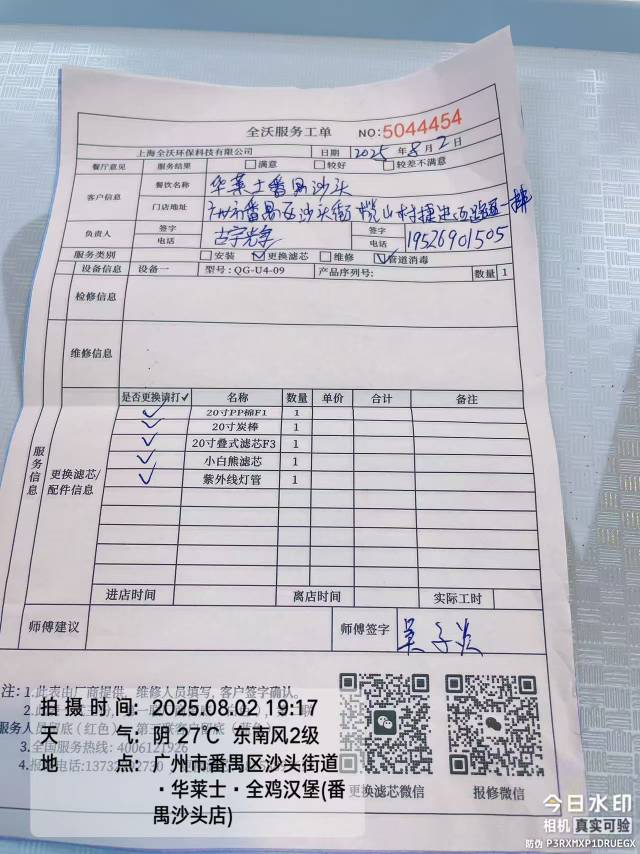 全沃服务工单 NO:5044454
上海全沃环保科技有限公司 日期 2025年8月2日
餐厅意见 服务结果 满意 较好 较差不满意
客户信息 餐饮名称 华莱士番禺沙头
门店地址 广州市番禺区沙头街
负责人 签字 签字
电话 电话 19526901505
服务类别 安装 更换滤芯 维修 管道消毒
设备信息 设备一 型号:QG-U4-09 产品序列号: 数量 1
检修信息
维修信息
服务信息
更换滤芯/配件信息
是否更换请打✓ 名称 数量 单价 合计 备注
✓ 20寸PP棉F1 1
✓ 20寸炭棒 1
✓ 20寸叠式滤芯F3 1
✓ 小白熊滤芯 1
✓ 紫外线灯管 1
进店时间 离店时间 实际工时
师傅建议 师傅签字
注:1.此表由厂商提供。维修人员填写,客户签字确认。
3.全国服务热线:4006121926
更换滤芯微信 报修微信
拍摄时间:2025.08.02 19:17
天气:阴 27℃ 东南风2级
地点:广州市番禺区沙头街道
·华莱士·全鸡汉堡(番
禺沙头店)
今日水印
相机 真实可验
防伪 P3RXMXP1DRUEGX